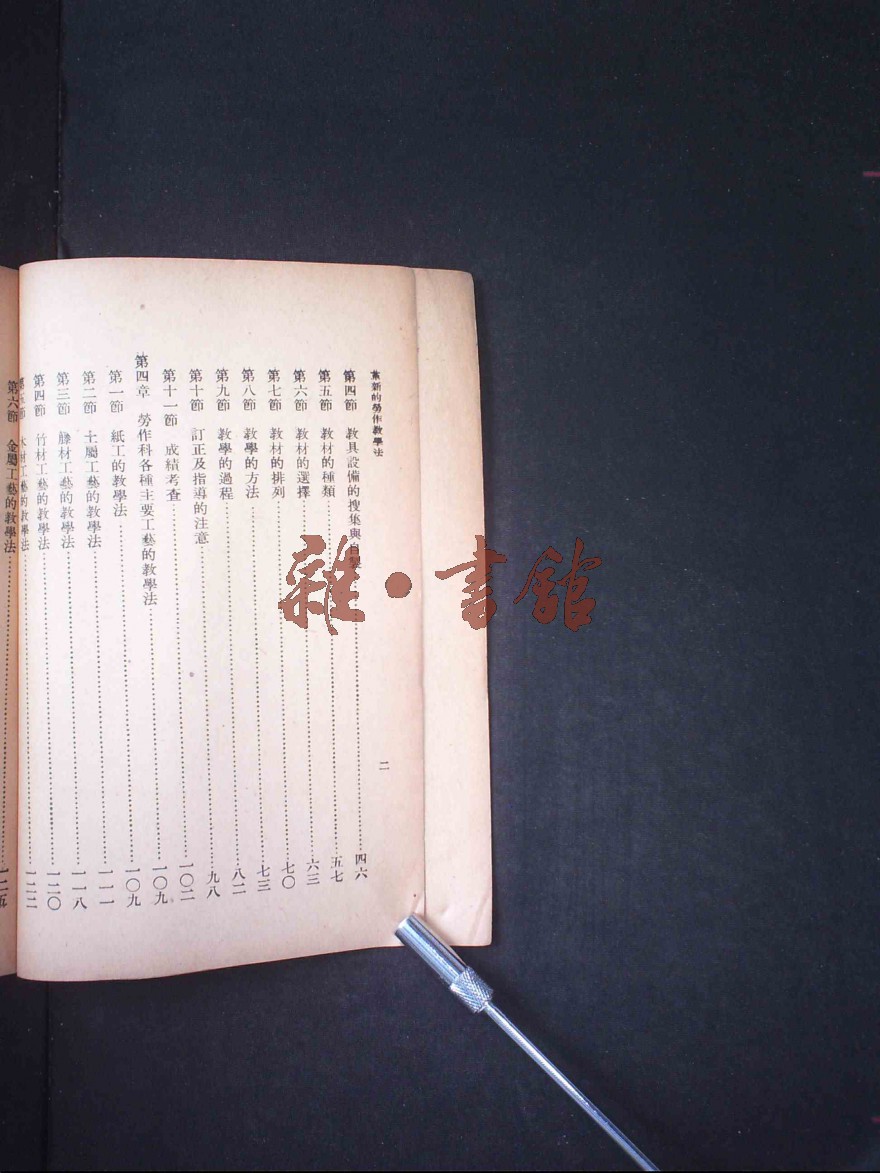 新的勞作教學法
二
第四節 教具設備的搜集與自製……四六
第五節 教材的種類……五七
第六節 教材的選擇……六三
第七節 教材的排列……七〇
第八節 教學的方法……七三
第九節 教學的過程……八二
第十節 訂正及指導的注意……九八
第十一節 成績考查……一〇二
第四章 勞作科各種主要工藝的教學法……一〇九
第一節 紙工的教學法……一〇九
第二節 土屬工藝的教學法……一一一
第三節 籐材工藝的教學法……一一八
第四節 竹材工藝的教學法……一二〇
第五節 木材工藝的教學法……一二二
第六節 金屬工藝的教學法……一二五
雜·書館